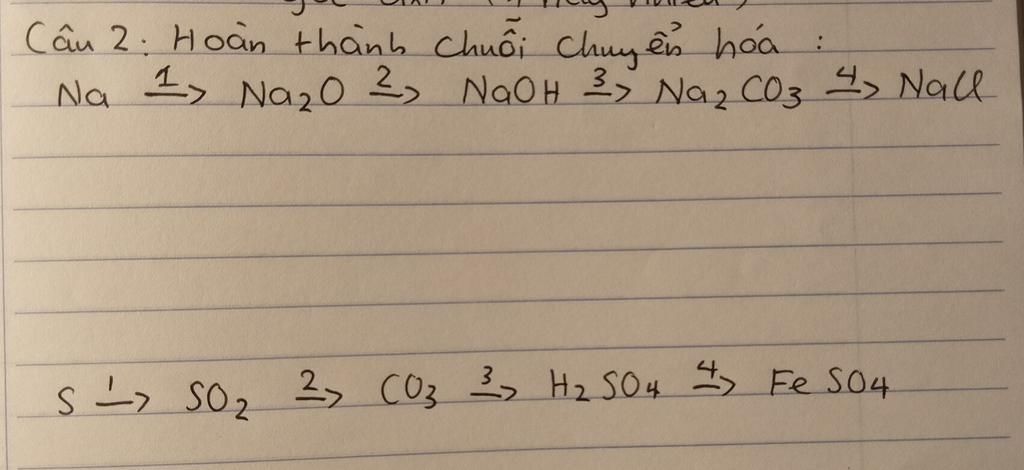 Câu 2: Hoàn thành chuỗi chuyển hóa :
Na 1→ Na2O 2→ NaOH 3→ Na2CO3 4→ NaCl
S 1→ SO2 2→ CO3 3→ H2SO4 4→ FeSO4